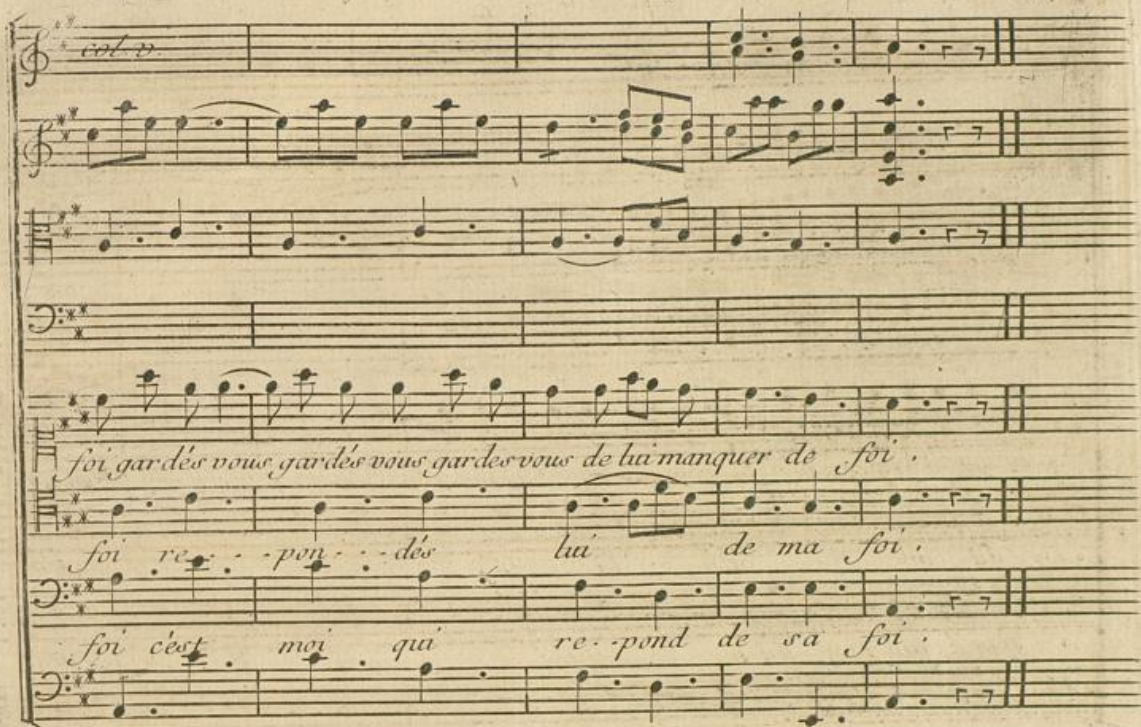 col. v.
foi gardés vous gardés vous gardes vous de lui manquer de foi.
foi re - - - pon - - - dés lui de ma foi.
foi c'est moi qui re - - pond de sa foi.